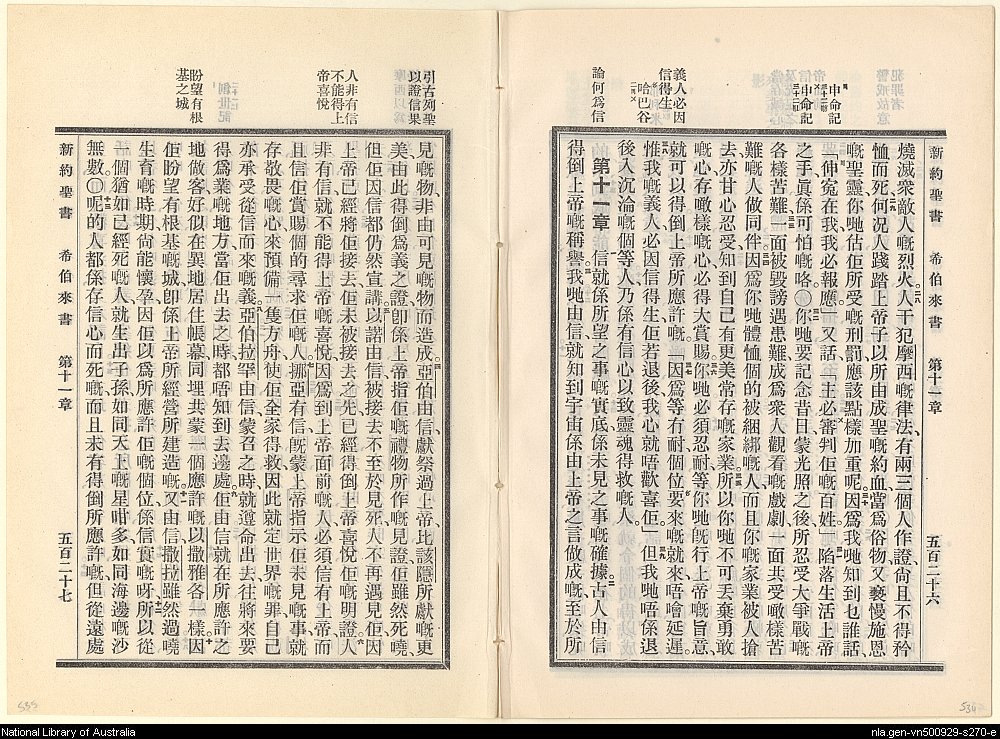 新約聖書 希伯來書 第十一章 五百二十六
申命記
申命記
義人必因
信得生
哈巴谷
論何爲信
燒滅衆敵人嘅烈火、人干犯摩西嘅律法、有兩三個人作證、尙且不得矜
恤而死、何況人踐踏上帝子、以所由成聖嘅約血、當爲俗物、又褻慢施恩
嘅聖靈、你哋估佢所受嘅刑罰、應該點樣加重呢、因爲我哋知到乜誰話、
「伸寃在我、我必報應」又話「主必審判佢嘅百姓」陷落生活上帝
之手、眞係可怕嘅咯、〇你哋要記念昔日、蒙光照之後、所忍受大爭戰嘅
各樣苦難、一面被毀謗遇患難、成爲衆人觀看嘅戲劇、一面共受噉樣苦
難嘅人做同伴、因爲你哋體恤個的被綑綁嘅人、而且你嘅家業被人搶
去、亦甘心忍受、知到自己有更美常存嘅家業、所以你哋不可丟棄勇敢
嘅心、存噉樣嘅心、必得大賞賜、你哋必須忍耐、等你哋旣行上帝嘅旨意、
就可以得倒上帝所應許嘅、因爲等有耐、個位要來嘅就來、唔會延遲、
惟我嘅義人、必因信得生、佢若退後、我心就唔歡喜佢」但我哋唔係退
後入沉淪嘅個等人、乃係有信心以致靈魂得救嘅人、
第十一章 信就係所望之事嘅實底、係未見之事嘅確據、古人由信
得倒上帝嘅稱譽、我哋由信就知到宇宙係由上帝之言做成嘅、至於所
引古列聖
以證信果
人非有信
不能得上
帝喜悅
盼望有根
基之城
見嘅物、非由可見嘅物而造成、亞伯由信獻祭過上帝、比該隱所獻嘅更
美、由此得倒爲義之證、卽係上帝指佢嘅禮物所作嘅見證、佢雖然死嘵、
但佢因信都仍然宣講、以諾由信被接去、不至於見死、人不再遇見佢、因
上帝已經將佢接去、佢未被接去之先、已經得倒上帝喜悅佢嘅明證、人
非有信、就不能得上帝嘅喜悅、因爲到上帝面前嘅人、必須信有上帝、而
且信佢賞賜個的尋求佢嘅人、挪亞有信、旣蒙上帝指示佢未見嘅事、就
存敬畏嘅心、來預備一隻方舟、使佢全家得救、因此就定世界嘅罪、自己
亦承受從信而來嘅義、亞伯拉罕由信、蒙召之時、就遵命出去、往將來要
得爲業嘅地方、當佢出去之時、都唔知到去邊處、佢由信、就在所應許之
地做客、好似在異地居住帳幕、同埋共蒙一個應許嘅以撒雅各一樣、因
佢盼望有根基嘅城、卽係上帝所經營所建造嘅、又由信、撒拉雖然過嘵
生育嘅時期、尙能懷孕、因佢以爲所應許佢嘅個位、係信實嘅呀、所以從
一個猶如已經死嘅人、就生出子孫、如同天上嘅星咁多、如同海邊嘅沙
無數、〇呢的人都係存信心而死嘅、而且未有得倒所應許嘅、但從遠處
新約聖書 希伯來書 第十一章 五百二十七
535
534
National Library of Australia
nla.gen-vn500929-s270-e